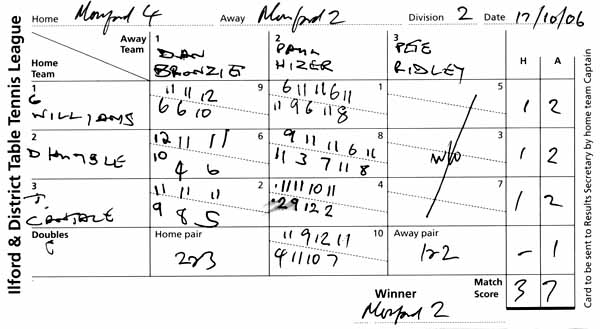 Ilford & District Table Tennis League
Home Monford 4 Away Monford 2 Division 2 Date 17/10/06
Away Team 1 DAN BRONZIE 2 PAUL HIZER 3 PETE RIDLEY H A
Home Team
1 G WILLIAMS 11 11 12 9 6 11 11 6 11 1 5 1 2
6 6 10 11 9 6 11 8
2 12 11 11 6 9 11 11 6 11 8 W/O 3 1 2
10 4 6 11 3 7 11 8
3 11 11 11 2 11 11 10 11 4 7 1 2
9 8 5 2 9 12 2
Doubles Home pair 11 9 12 11 10 Away pair - 1
2+3 4 11 10 7 1+2
Winner Match Score 3 7
Monford 2
Card to be sent to Results Secretary by home team Captain